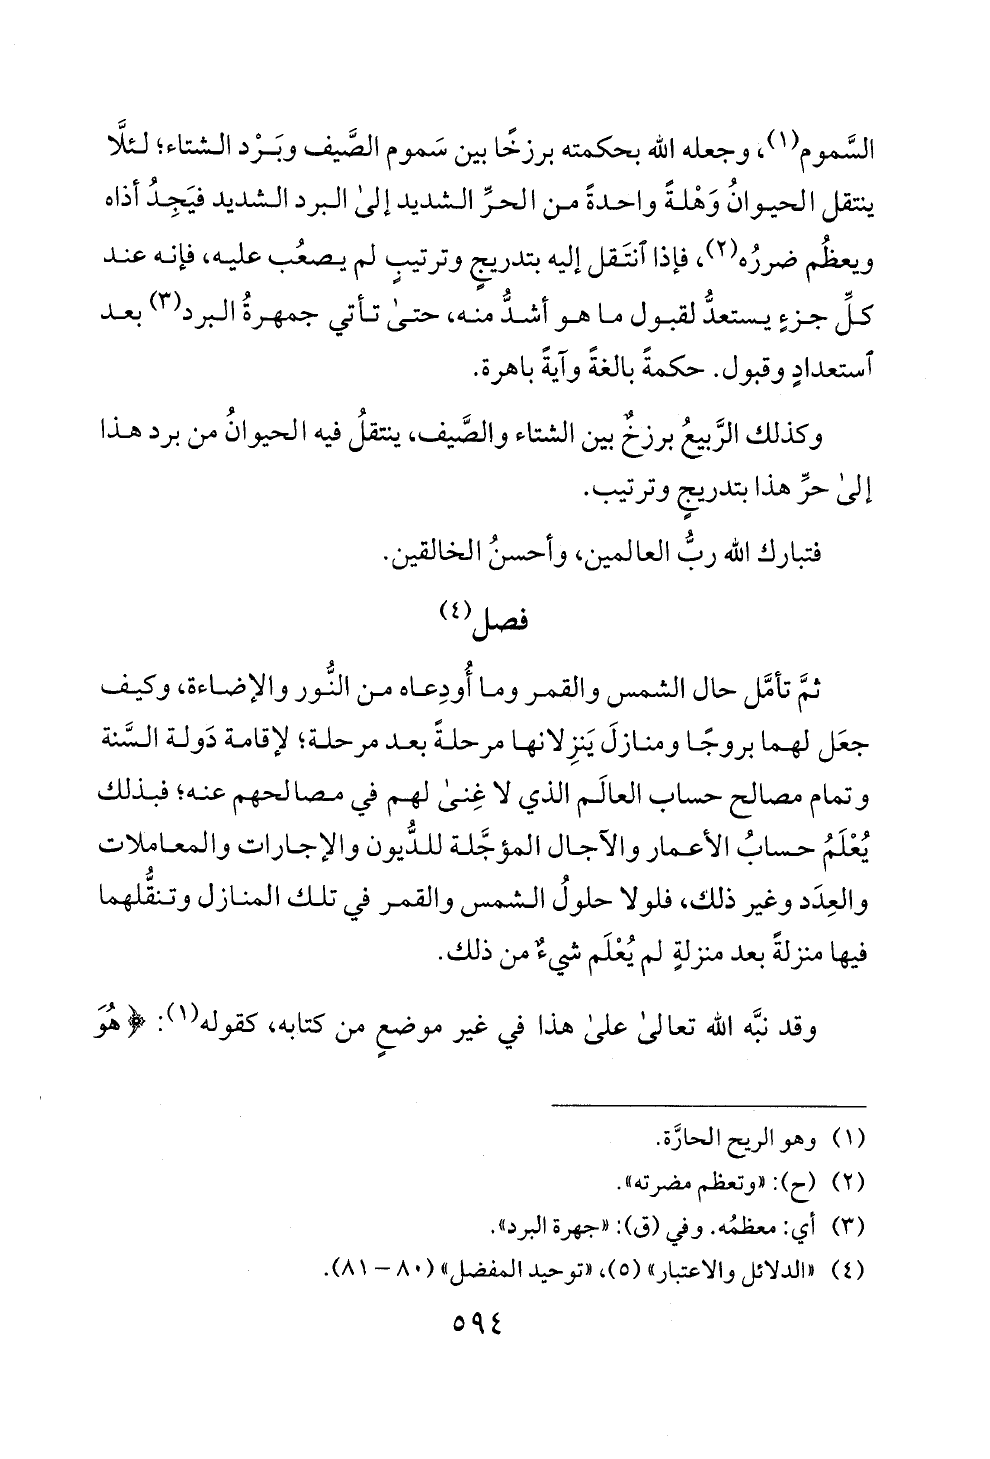 السَّموم(١)، وجعله الله بحكمته برزخًا بين سَموم الصَّيف وبَرْد الشتاء؛ لئلَّا
ينتقل الحيوانُ وَهْلةً واحدةً من الحرِّ الشديد إلىٰ البرد الشديد فيَجِدُ أذاه
ويعظُم ضررُه(٢)، فإذا ٱنتَقل إليه بتدريجٍ وترتيبٍ لم يصعُب عليه، فإنه عند
كلِّ جزءٍ يستعدُّ لقبول ما هو أشدُّ منه، حتىٰ تأتي جمهرةُ البرد(٣) بعد
ٱستعدادٍ وقبول. حكمةً بالغةً وآيةً باهرة.
وكذلك الرَّبيعُ برزخٌ بين الشتاء والصَّيف، ينتقلُ فيه الحيوانُ من برد هذا
إلىٰ حرِّ هذا بتدريجٍ وترتيب.
فتبارك الله ربُّ العالمين، وأحسنُ الخالقين.
فصل(٤)
ثمَّ تأمَّل حال الشمس والقمر وما أُودِعاه من النُّور والإضاءة، وكيف
جعَل لهما بروجًا ومنازلَ يَنزِلانها مرحلةً بعد مرحلة؛ لإقامة دَولة السَّنة
وتمام مصالح حساب العالَم الذي لا غِنىٰ لهم في مصالحهم عنه؛ فبذلك
يُعْلَمُ حسابُ الأعمار والآجال المؤجَّلة للدُّيون والإجارات والمعاملات
والعِدَد وغير ذلك، فلولا حلولُ الشمس والقمر في تلك المنازل وتنقُّلهما
فيها منزلةً بعد منزلةٍ لم يُعْلَم شيءٌ من ذلك.
وقد نبَّه الله تعالىٰ علىٰ هذا في غير موضعٍ من كتابه، كقوله(١): ﴿ هُوَ
(١) وهو الريح الحارَّة.
(٢) (ح): «وتعظم مضرته».
(٣) أي: معظمُه. وفي (ق): «جهرة البرد».
(٤) «الدلائل والاعتبار» (٥)، «توحيد المفضل» (٨٠ - ٨١).
٥٩٤